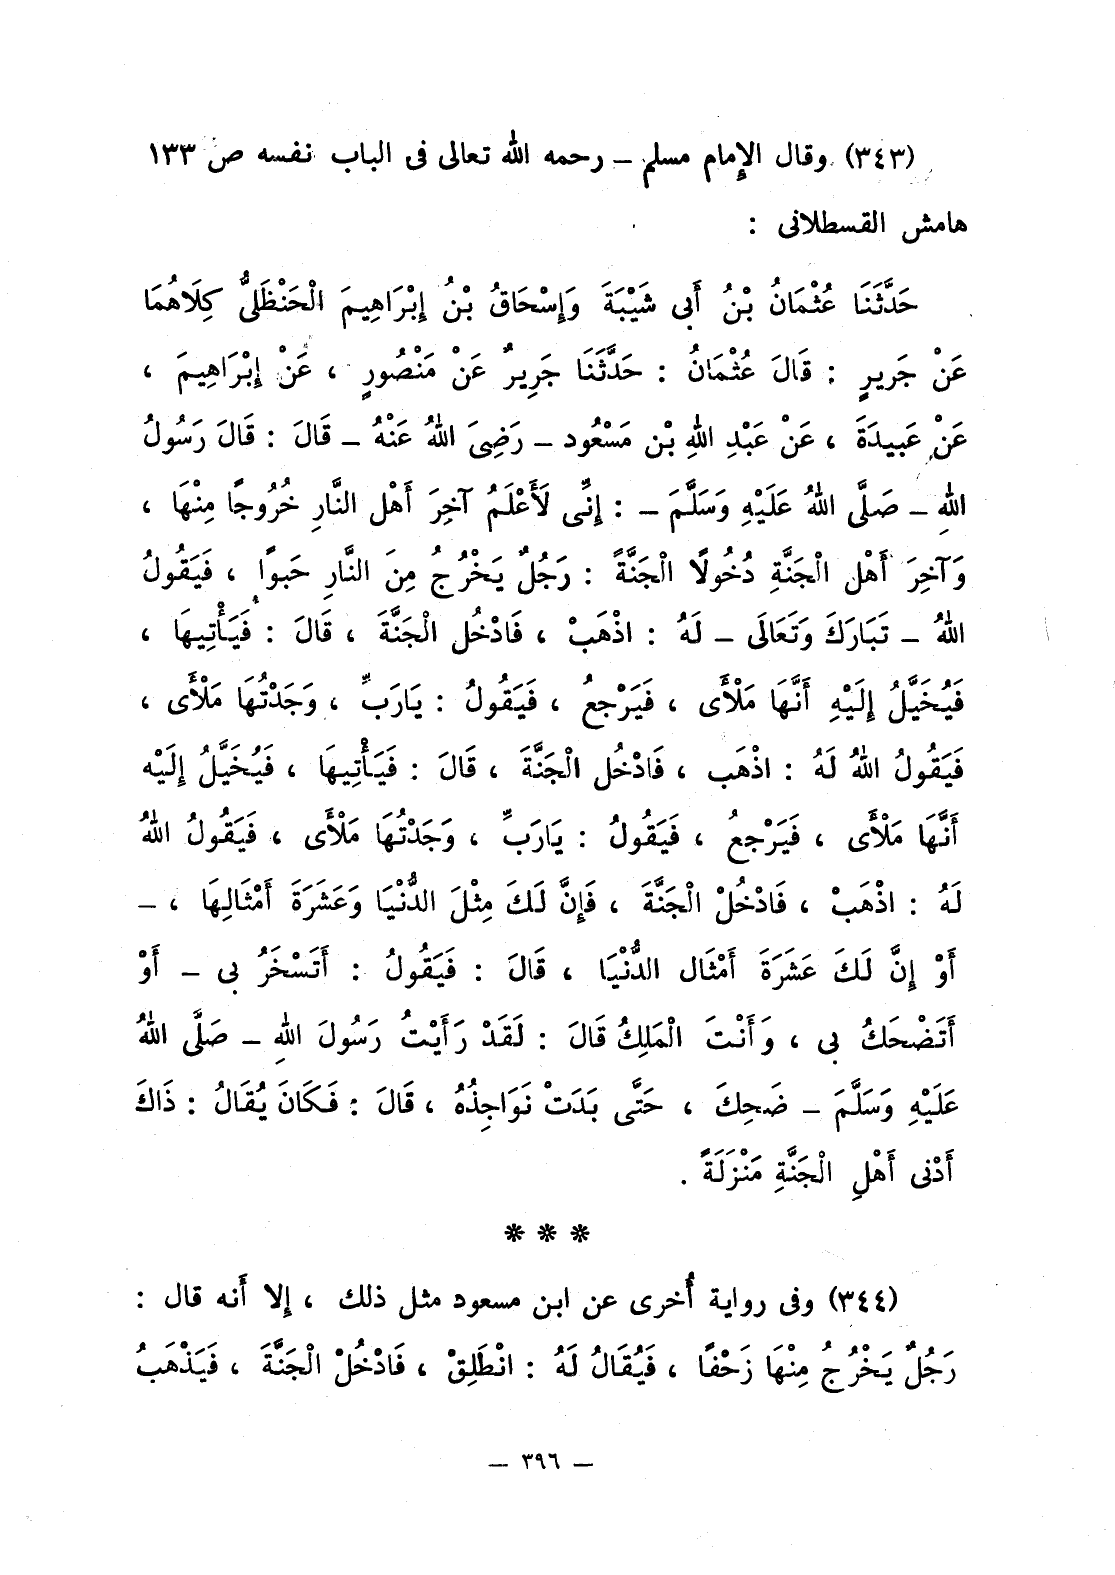 (٣٤٣) وقال الإمام مسلم – رحمه الله تعالى فى الباب نفسه ص ١٣٣
هامش القسطلانى :
حَدَّثَنَا عُثْمَانُ بْنُ أَبِى شَيْبَةَ وَإِسْحَاقُ بْنُ إِبْرَاهِيمَ الْحَنْظَلِىُّ كِلَاهُمَا
عَنْ جَرِيرٍ : قَالَ عُثْمَانُ : حَدَّثَنَا جَرِيرٌ عَنْ مَنْصُورٍ ، عَنْ إِبْرَاهِيمَ ،
عَنْ عَبِيدَةَ ، عَنْ عَبْدِ اللهِ بْنِ مَسْعُود – رَضِىَ اللهُ عَنْهُ – قَالَ : قَالَ رَسُولُ
اللهِ – صَلَّى اللهُ عَلَيْهِ وَسَلَّمَ – : إِنِّى لَأَعْلَمُ آخِرَ أَهْلِ النَّارِ خُرُوجًا مِنْهَا ،
وَآخِرَ أَهْلِ الْجَنَّةِ دُخُولًا الْجَنَّةَ : رَجُلٌ يَخْرُجُ مِنَ النَّارِ حَبوًا ، فَيَقُولُ
اللهُ – تَبَارَكَ وَتَعَالَى – لَهُ : اذْهَبْ ، فَادْخُلِ الْجَنَّةَ ، قَالَ : فَيَأْتِيهَا ،
فَيُخَيَّلُ إِلَيْهِ أَنَّهَا مَلْأَى ، فَيَرْجِعُ ، فَيَقُولُ : يَارَبِّ ، وَجَدْتُهَا مَلْأَى ،
فَيَقُولُ اللهُ لَهُ : اذْهَب ، فَادْخُلِ الْجَنَّةَ ، قَالَ : فَيَأْتِيهَا ، فَيُخَيَّلُ إِلَيْهِ
أَنَّهَا مَلْأَى ، فَيَرْجِعُ ، فَيَقُولُ : يَارَبِّ ، وَجَدْتُهَا مَلْأَى ، فَيَقُولُ اللهُ
لَهُ : اذْهَبْ ، فَادْخُلْ الْجَنَّةَ ، فَإِنَّ لَكَ مِثْلَ الدُّنْيَا وَعَشَرَةَ أَمْثَالِهَا ، –
أَوْ إِنَّ لَكَ عَشَرَةَ أَمْثَالِ الدُّنْيَا ، قَالَ : فَيَقُولُ : أَتَسْخَرُ بِى – أَوْ
أَتَضْحَكُ بِى ، وَأَنْتَ الْمَلِكُ قَالَ : لَقَدْ رَأَيْتُ رَسُولَ اللهِ – صَلَّى اللهُ
عَلَيْهِ وَسَلَّمَ – ضَحِكَ ، حَتَّى بَدَتْ نَوَاجِذُهُ ، قَالَ : فَكَانَ يُقَالُ : ذَاكَ
أَدْنى أَهْلِ الْجَنَّةِ مَنْزِلَةً .
* * *
(٣٤٤) وفى رواية أُخرى عن ابن مسعود مثل ذلك ، إِلا أَنه قال :
رَجُلٌ يَخْرُجُ مِنْهَا زَحْفًا ، فَيُقَالُ لَهُ : انْطَلِقْ ، فَادْخُلْ الْجَنَّةَ ، فَيَذْهَبُ
– ٣٩٦ –